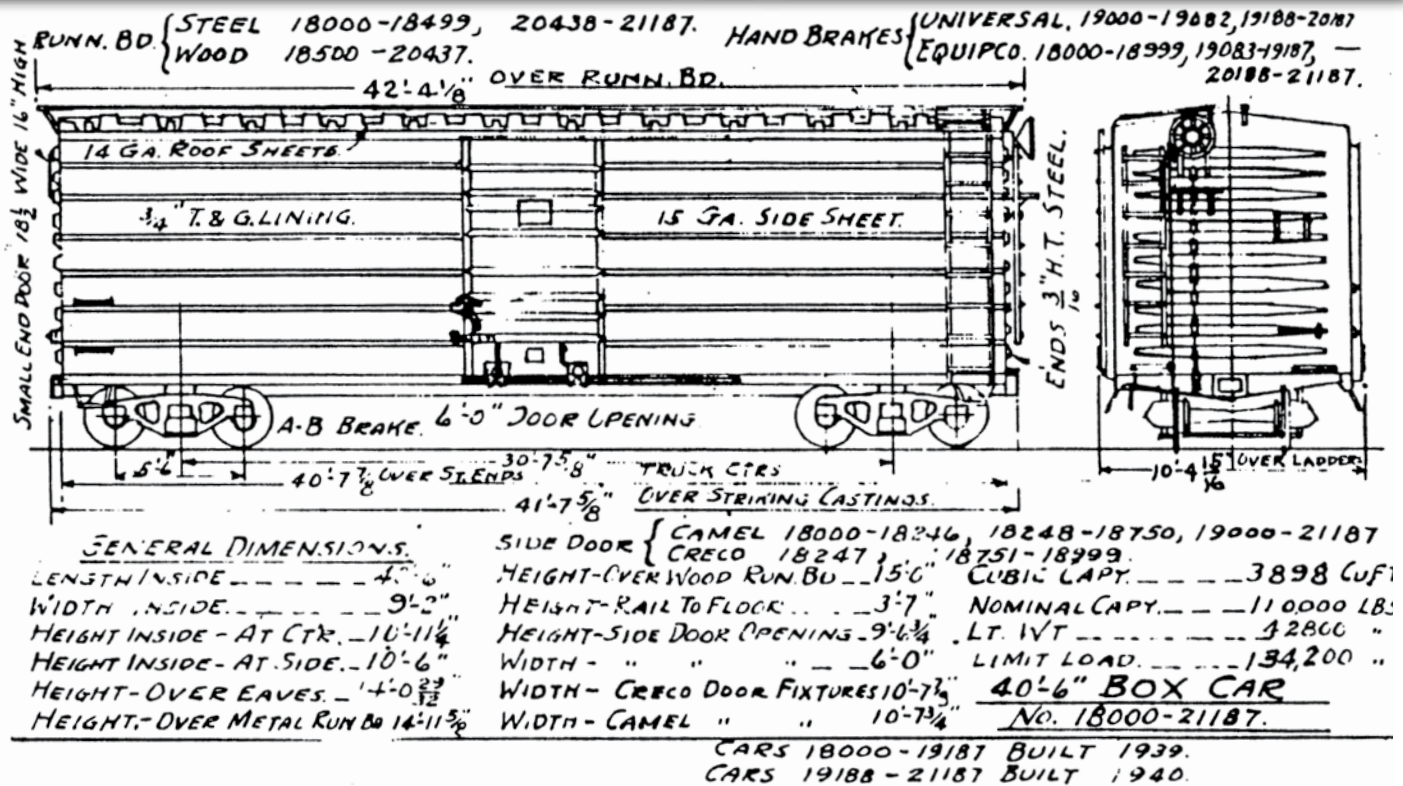 RUNN. BD. { STEEL 18000-18499, 20438-21187.
WOOD 18500-20437.
HAND BRAKES { UNIVERSAL. 19000-19082, 19188-20187
EQUIPCO. 18000-18999, 19083-19187, —
20188-21187.
42'-4 1/8" OVER RUNN. BD.
SMALL END DOOR 18 1/2 WIDE 16" HIGH
14 GA. ROOF SHEETS.
3/4" T. & G. LINING.
15 GA. SIDE SHEET.
ENDS 3/16" H.T. STEEL.
A-B BRAKE. 6'-0" DOOR OPENING
5'-6"
30'-7 5/8" TRUCK CTRS
40'-7 7/8 OVER ST. ENDS
41'-7 5/8" OVER STRIKING CASTINGS.
10'-4 15/16 OVER LADDERS
GENERAL DIMENSIONS.
LENGTH INSIDE
WIDTH INSIDE 9'-2"
HEIGHT INSIDE - AT CTR. 10'-11 1/4"
HEIGHT INSIDE - AT SIDE. 10'-6"
HEIGHT - OVER EAVES. 14'-0 29/32"
HEIGHT. - OVER METAL RUN BD 14'-11
SIDE DOOR { CAMEL 18000-18246, 18248-18750, 19000-21187
CRECO 18247, 18751-18999.
HEIGHT-OVER WOOD RUN. BD 15'-0"
HEIGHT-RAIL TO FLOOR 3'-7"
HEIGHT-SIDE DOOR OPENING 9'-6 3/4"
WIDTH - " " " 6'-0"
WIDTH - CRECO DOOR FIXTURES 10'-7
WIDTH - CAMEL " " 10'-7 3/4"
CUBIC CAPY. 3898 CUFT
NOMINAL CAPY. 110,000 LBS
LT. WT 42800 "
LIMIT LOAD. 134,200 "
40'-6" BOX CAR
No. 18000-21187.
CARS 18000-19187 BUILT 1939.
CARS 19188-21187 BUILT 1940.